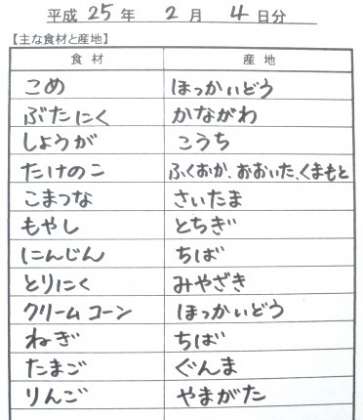 平成 25 年 2 月 4 日分
【主な食材と産地】
食材 産地
こめ ほっかいどう
ぶたにく かながわ
しょうが こうち
たけのこ ふくおか、おおいた、くまもと
こまつな さいたま
もやし とちぎ
にんじん ちば
とりにく みやざき
クリームコーン ほっかいどう
ねぎ ちば
たまご ぐんま
りんご やまがた